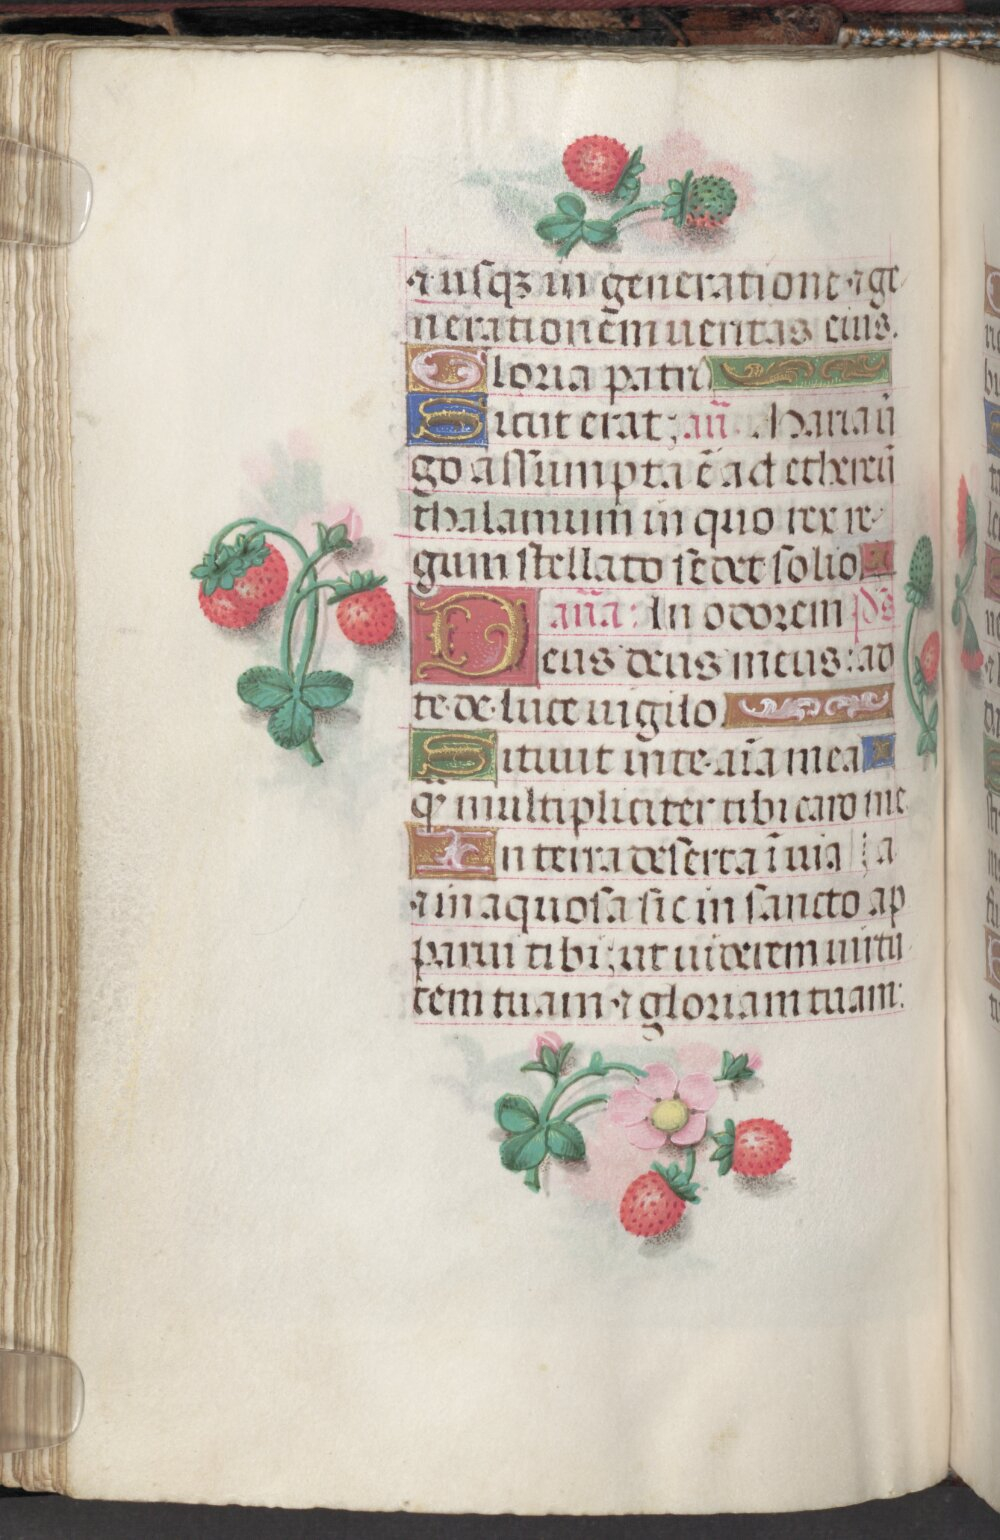 ⁊ usqꝫ in generatione ⁊ ge
nerationẽm ueritas eius.
Gloria patri
Sicut erat; añ. Maria uĩ
go assumpta ẽ ad ethereũ
thalamum in quo rex re
gum stellato sedet solio
aña: In odorem p̃s
Deus deus meus: ad
te de luce uigilo
Sitiuit in te aĩa mea
q̃ multipliciter tibi caro me
In terra deserta ĩ uia ; a
⁊ in aquosa sic in sancto ap
parui tibi; ut uiderem uirtu
tem tuam ⁊ gloriam tuam: